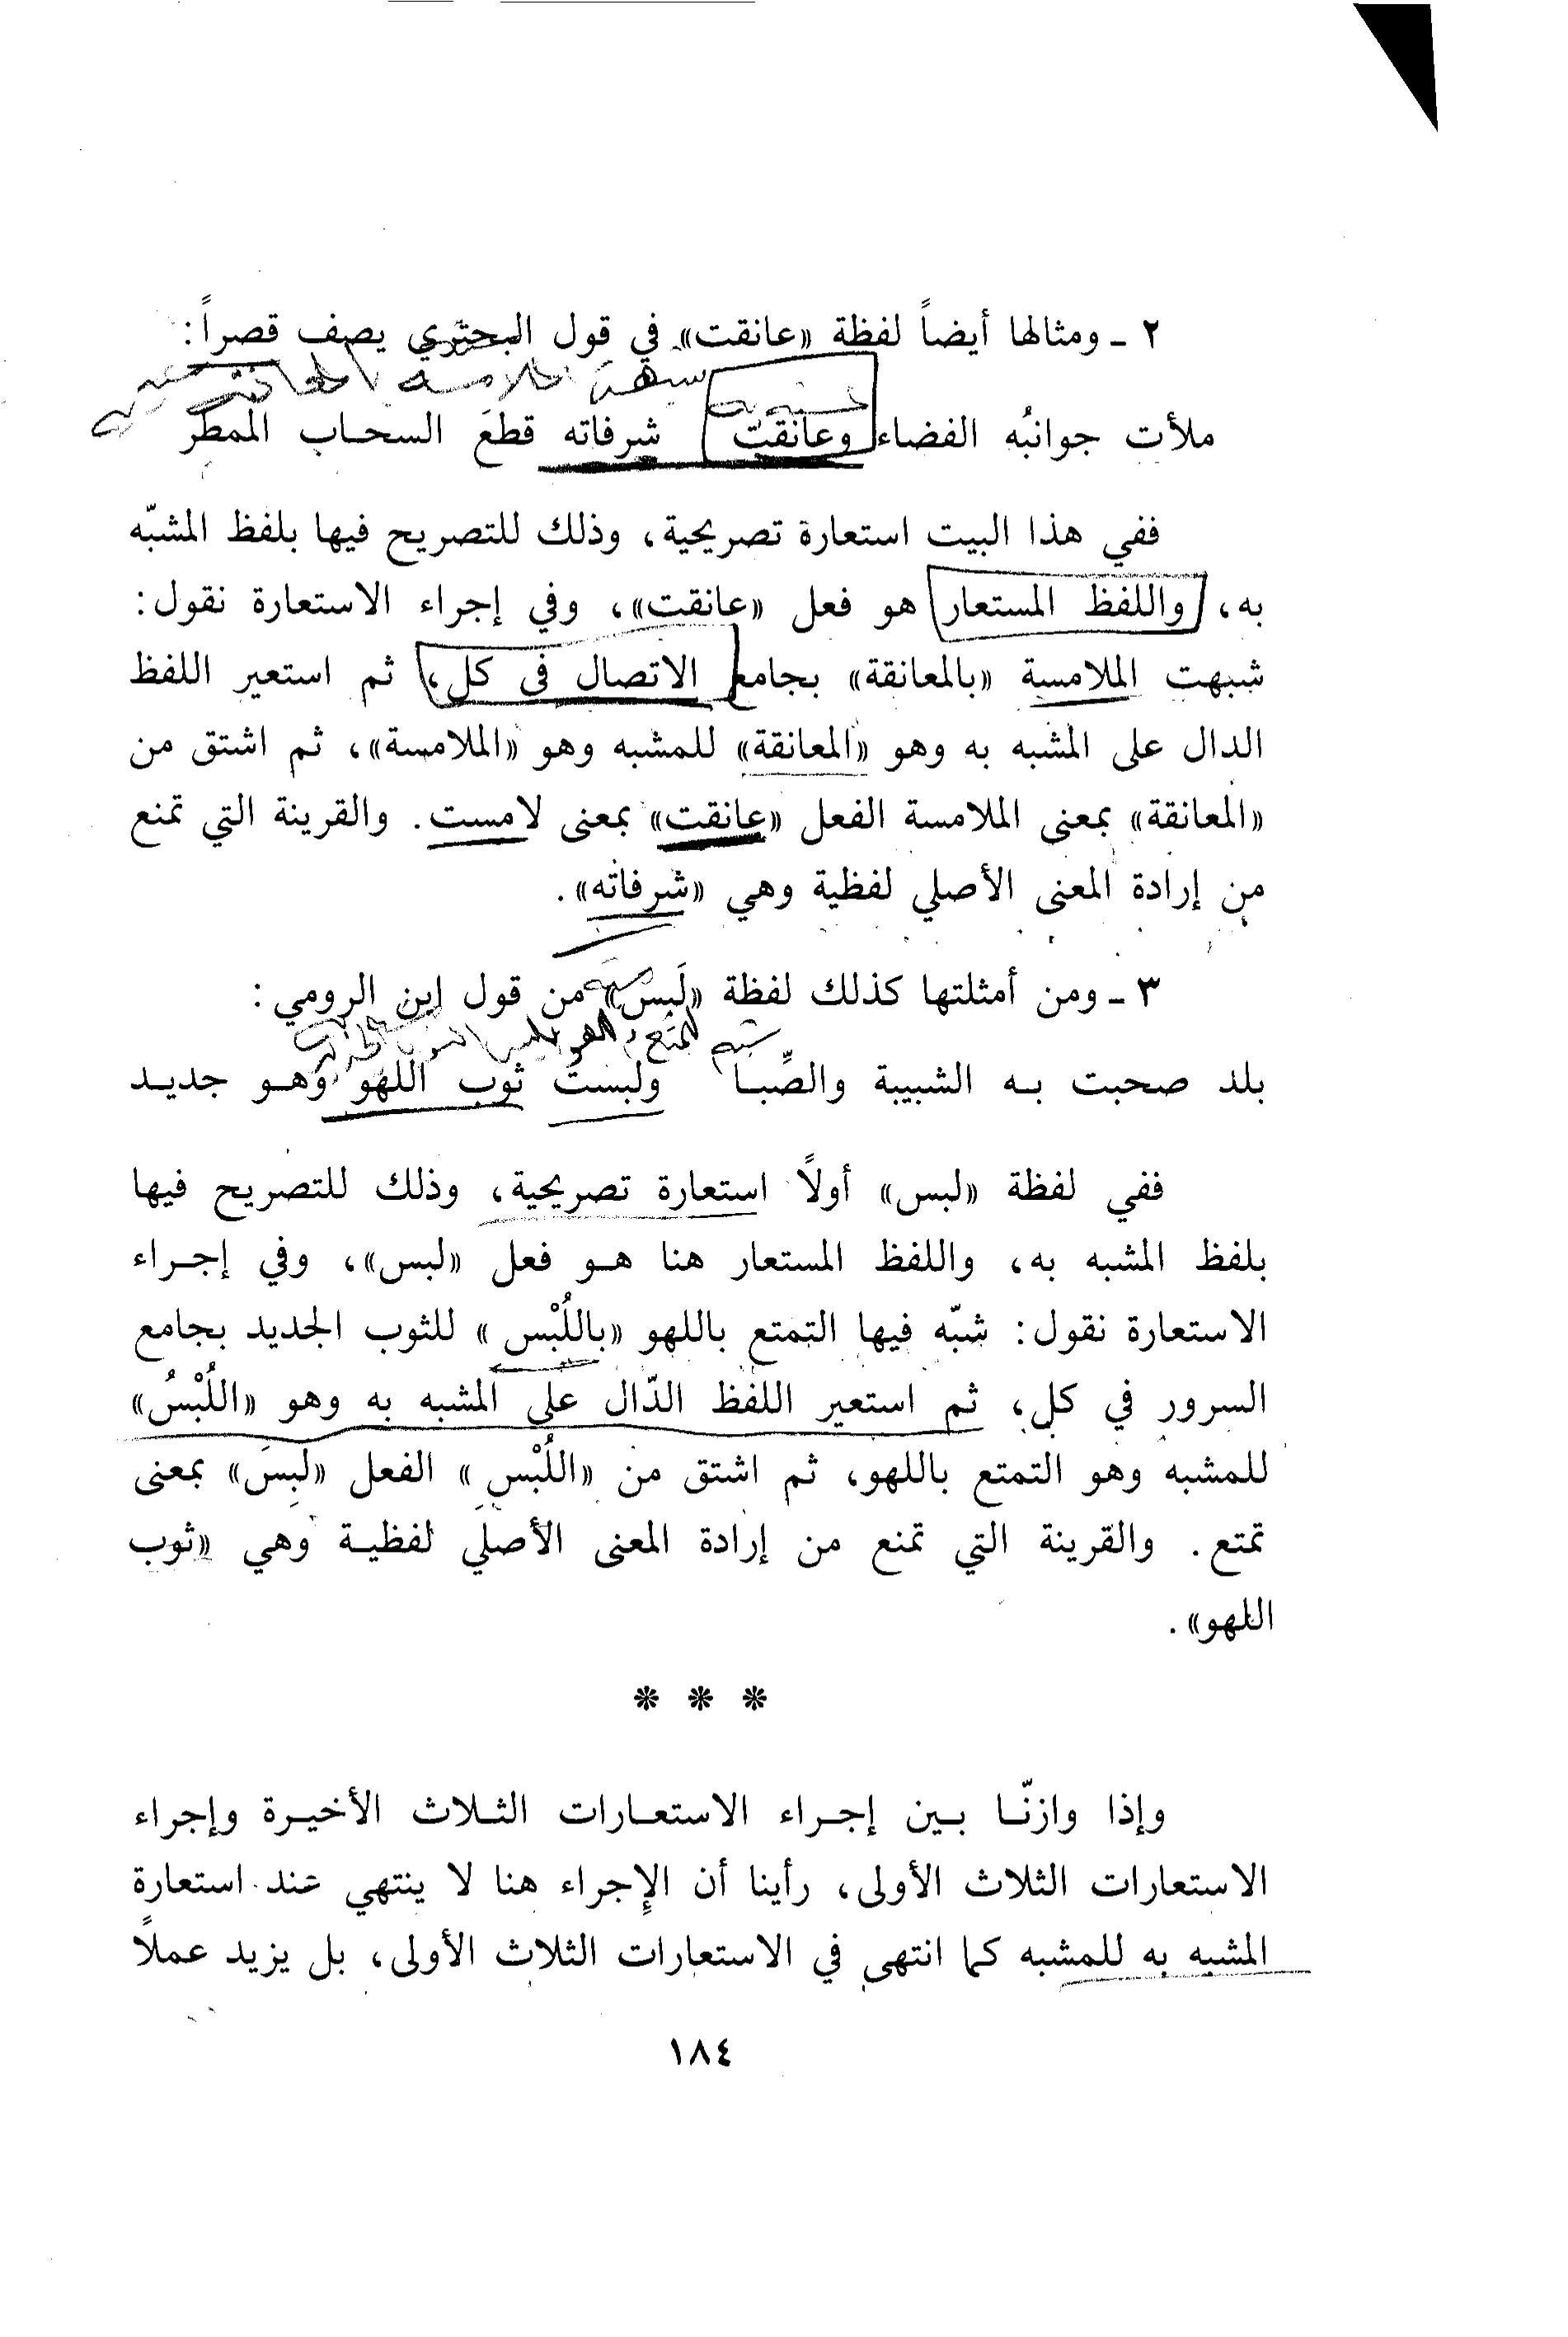 ٢ ـ ومثالها أيضاً لفظة «عانقت» في قول البحتري يصف قصراً:
شبهت الملامسة بالمعانقة
ملأت جوانبُه الفضاء وعانقت شرفاته قطعَ السحاب الممطر
ففي هذا البيت استعارة تصريحية، وذلك للتصريح فيها بلفظ المشبّه
به، واللفظ المستعار هو فعل «عانقت»، وفي إجراء الاستعارة نقول:
شبهت الملامسة «بالمعانقة» بجامع الاتصال في كل، ثم استعير اللفظ
الدال على المشبه به وهو «المعانقة» للمشبه وهو «الملامسة»، ثم اشتق من
«المعانقة» بمعنى الملامسة الفعل «عانقت» بمعنى لامست. والقرينة التي تمنع
من إرادة المعنى الأصلي لفظية وهي «شرفاته».
٣ ـ ومن أمثلتها كذلك لفظة «لَبس» من قول ابن الرومي:
بلد صحبت به الشبيبة والصِّبا ولبست ثوب اللهو وهو جديد
ففي لفظة «لبس» أولاً استعارة تصريحية، وذلك للتصريح فيها
بلفظ المشبه به، واللفظ المستعار هنا هو فعل «لبس»، وفي إجراء
الاستعارة نقول: شبّه فيها التمتع باللهو «باللُبْس» للثوب الجديد بجامع
السرور في كل، ثم استعير اللفظ الدّال على المشبه به وهو «اللُبْسُ»
للمشبه وهو التمتع باللهو، ثم اشتق من «اللُبْس» الفعل «لبِسَ» بمعنى
تمتع. والقرينة التي تمنع من إرادة المعنى الأصلي لفظية وهي «ثوب
اللهو».
* * *
وإذا وازنّا بين إجراء الاستعارات الثلاث الأخيرة وإجراء
الاستعارات الثلاث الأولى، رأينا أن الإجراء هنا لا ينتهي عند استعارة
المشبه به للمشبه كما انتهى في الاستعارات الثلاث الأولى، بل يزيد عملاً
١٨٤